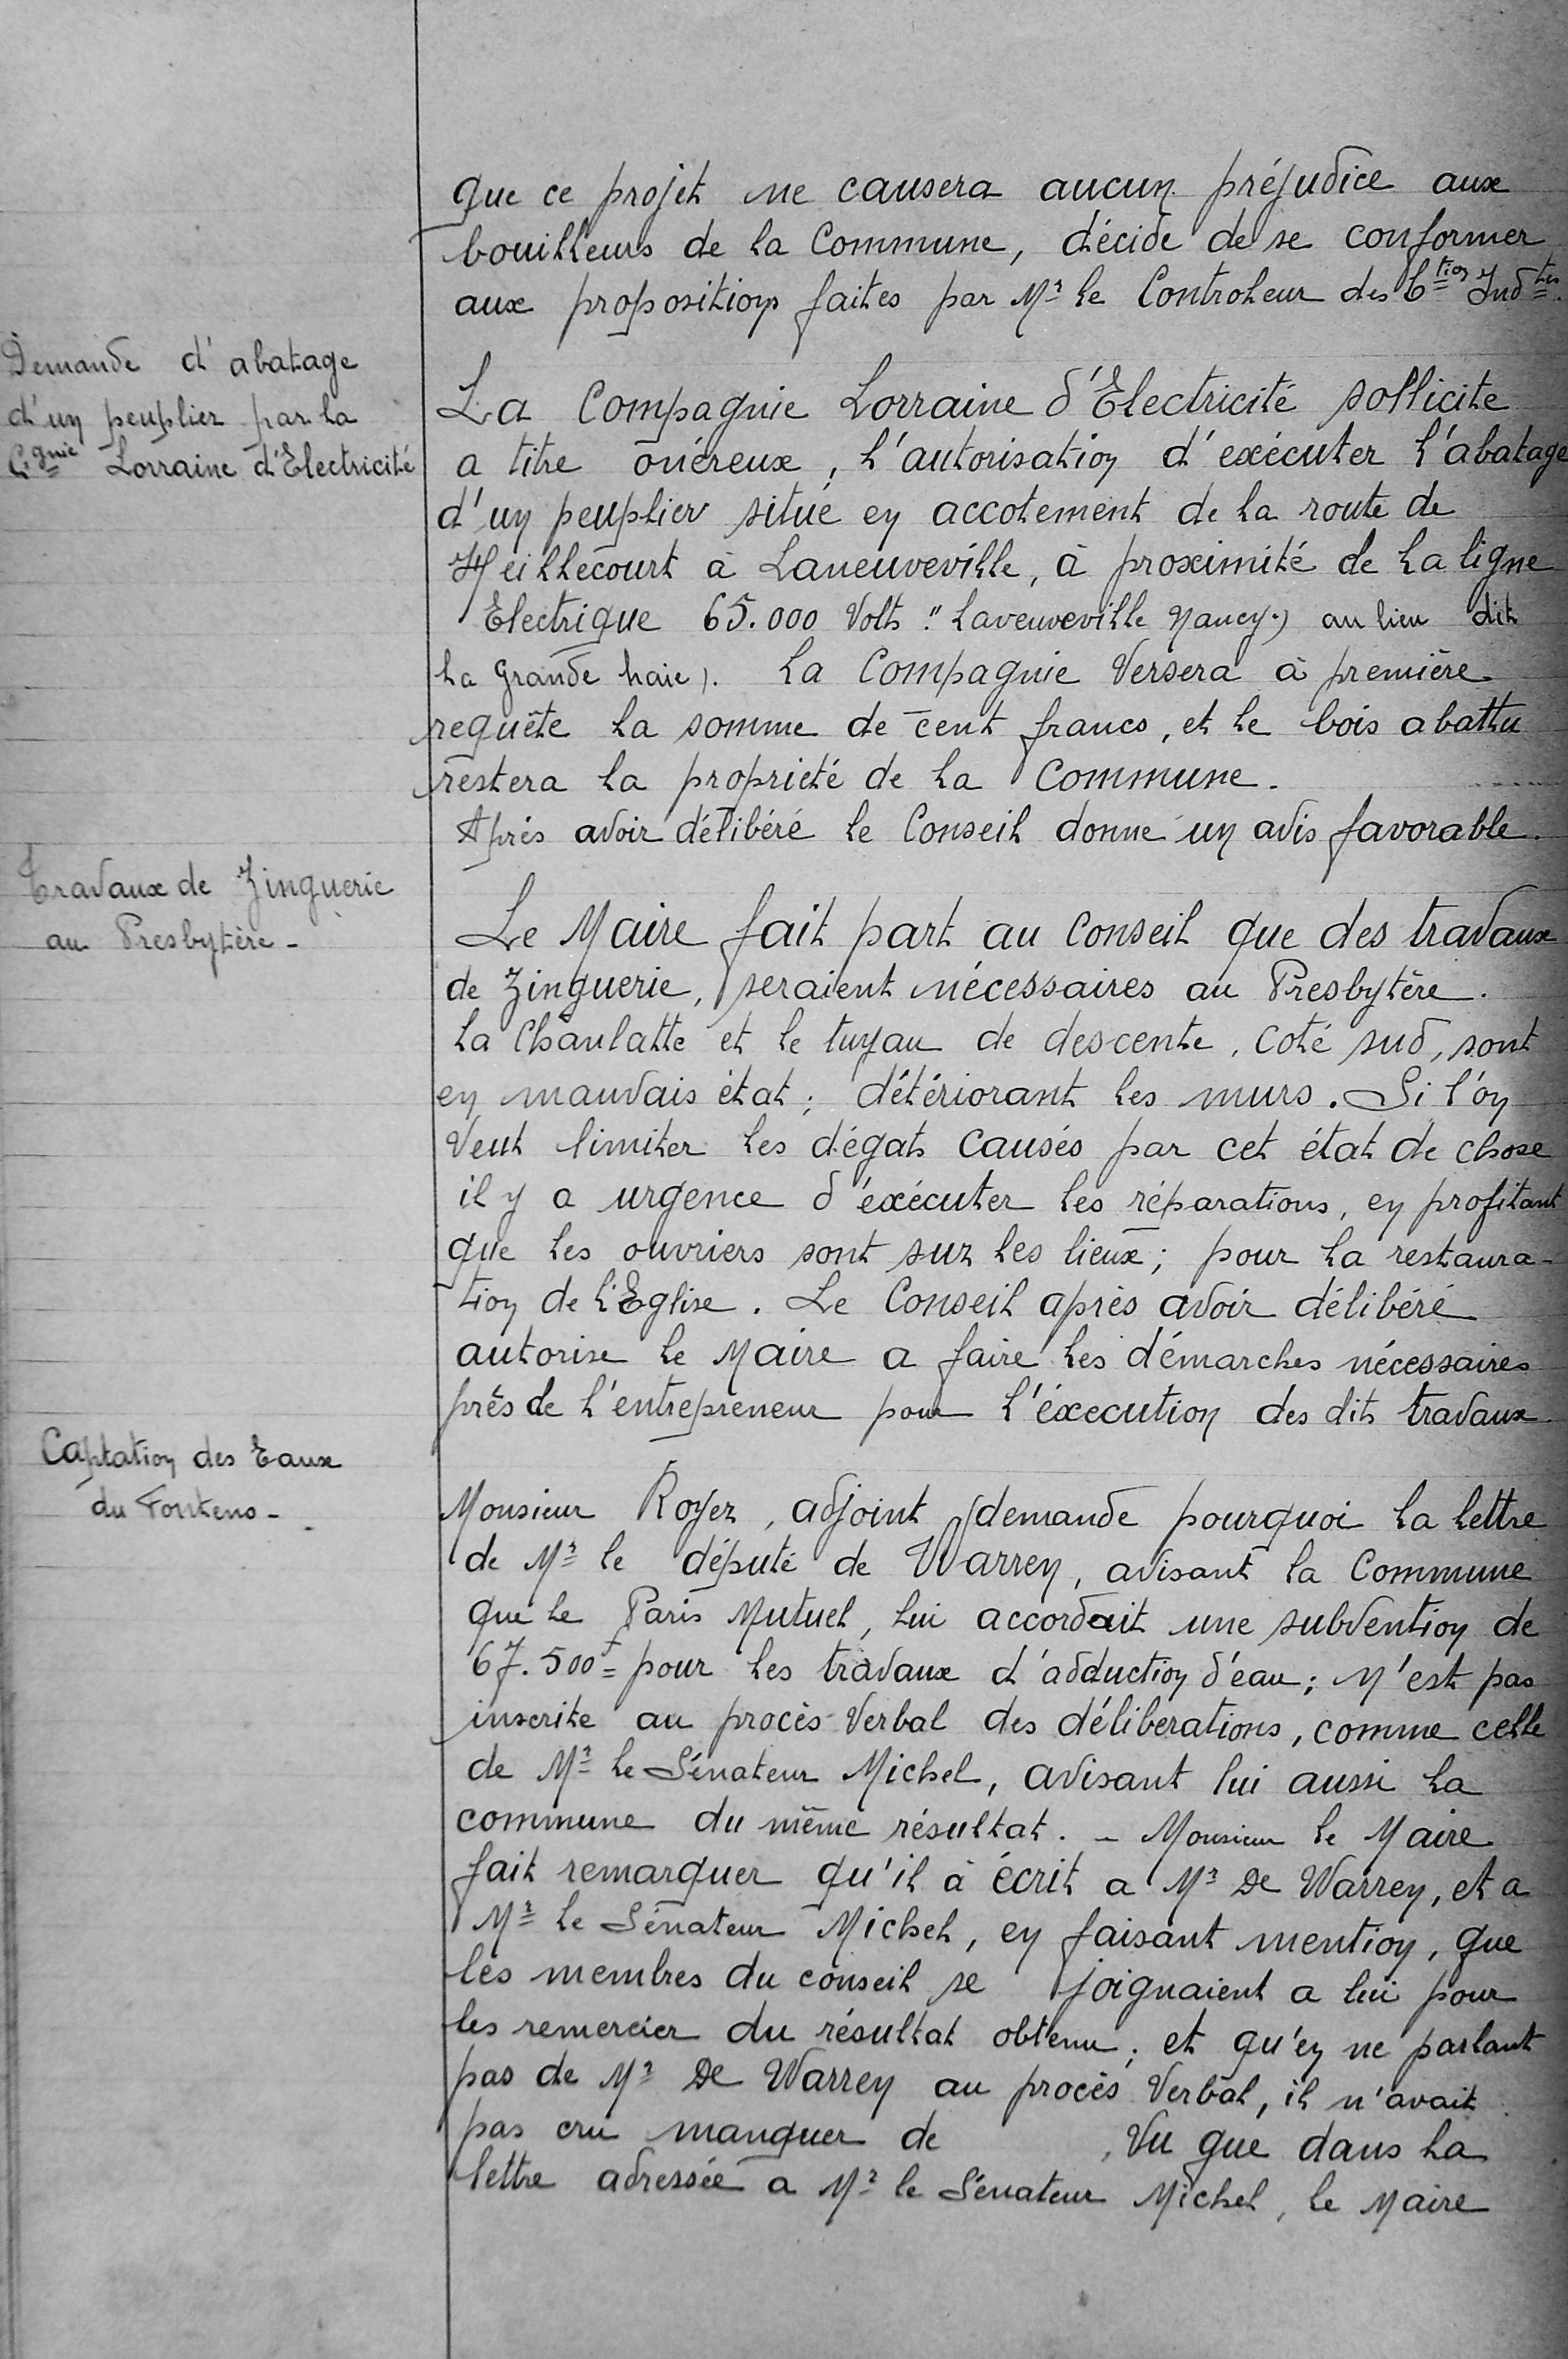 que ce projet ne causera aucun préjudice aux
bouilleurs de la Commune, décide de se conformer
aux propositions faites par Mr le Controleur des Ctions Indtes.
Demande d'abatage
d'un peuplier par la
Cgnie Lorraine d'Electricité
La Compagnie Lorraine d'Electricité sollicite
a titre onéreux, l'autorisation d'exécuter l'abatage
d'un peuplier situé en accotement de la route de
Heillecourt à Laneuveville, à proximité de la ligne
Electrique 65.000 Volts "Laveuveville Nancy.) au lieu dit
la Grande haie). La Compagnie Versera à première
requête la somme de cent francs, et le bois abattu
restera la propriété de la Commune.
Après avoir délibéré le Conseil donne un avis favorable.
Travaux de Zinguerie
au Presbytère -
Le Maire fait part au Conseil que des travaux
de Zinguerie, seraient nécessaires au Presbytère.
La Chanlatte et le tuyau de descente, coté sud, sont
en mauvais état; détériorant les murs. Si l'on
Veut limiter les dégats causés par cet état de chose
il y a urgence d'éxécuter les réparations, en profitant
que les ouvriers sont sur les lieux; pour la restaura-
tion de l'Eglise. Le Conseil après avoir délibéré
autorise le Maire a faire les démarches nécessaires
près de l'entrepreneur pour l'éxecution des dits travaux.
Captation des Eaux
du Fonteno -
Monsieur Royer, adjoint demande pourquoi la lettre
de Mr le député de Warren, avisant la Commune
que le Paris Mutuel, lui accordait une subvention de
67.500f pour les travaux d'adduction d'eau; N'est pas
inscrite au procès Verbal des déliberations, comme celle
de Mr le Sénateur Michel, avisant lui aussi la
commune du même résultat. - Monsieur le Maire
fait remarquer qu'il à écrit a Mr De Warren, et a
Mr le Sénateur Michel, en faisant mention, que
les membres du conseil se joignaient a lui pour
les remercier du résultat obtenu; et qu'en ne parlant
pas de Mr De Warren au procès Verbal, il n'avait
pas cru manquer de , Vu que dans la
lettre adressée a Mr le Sénateur Michel, le Maire